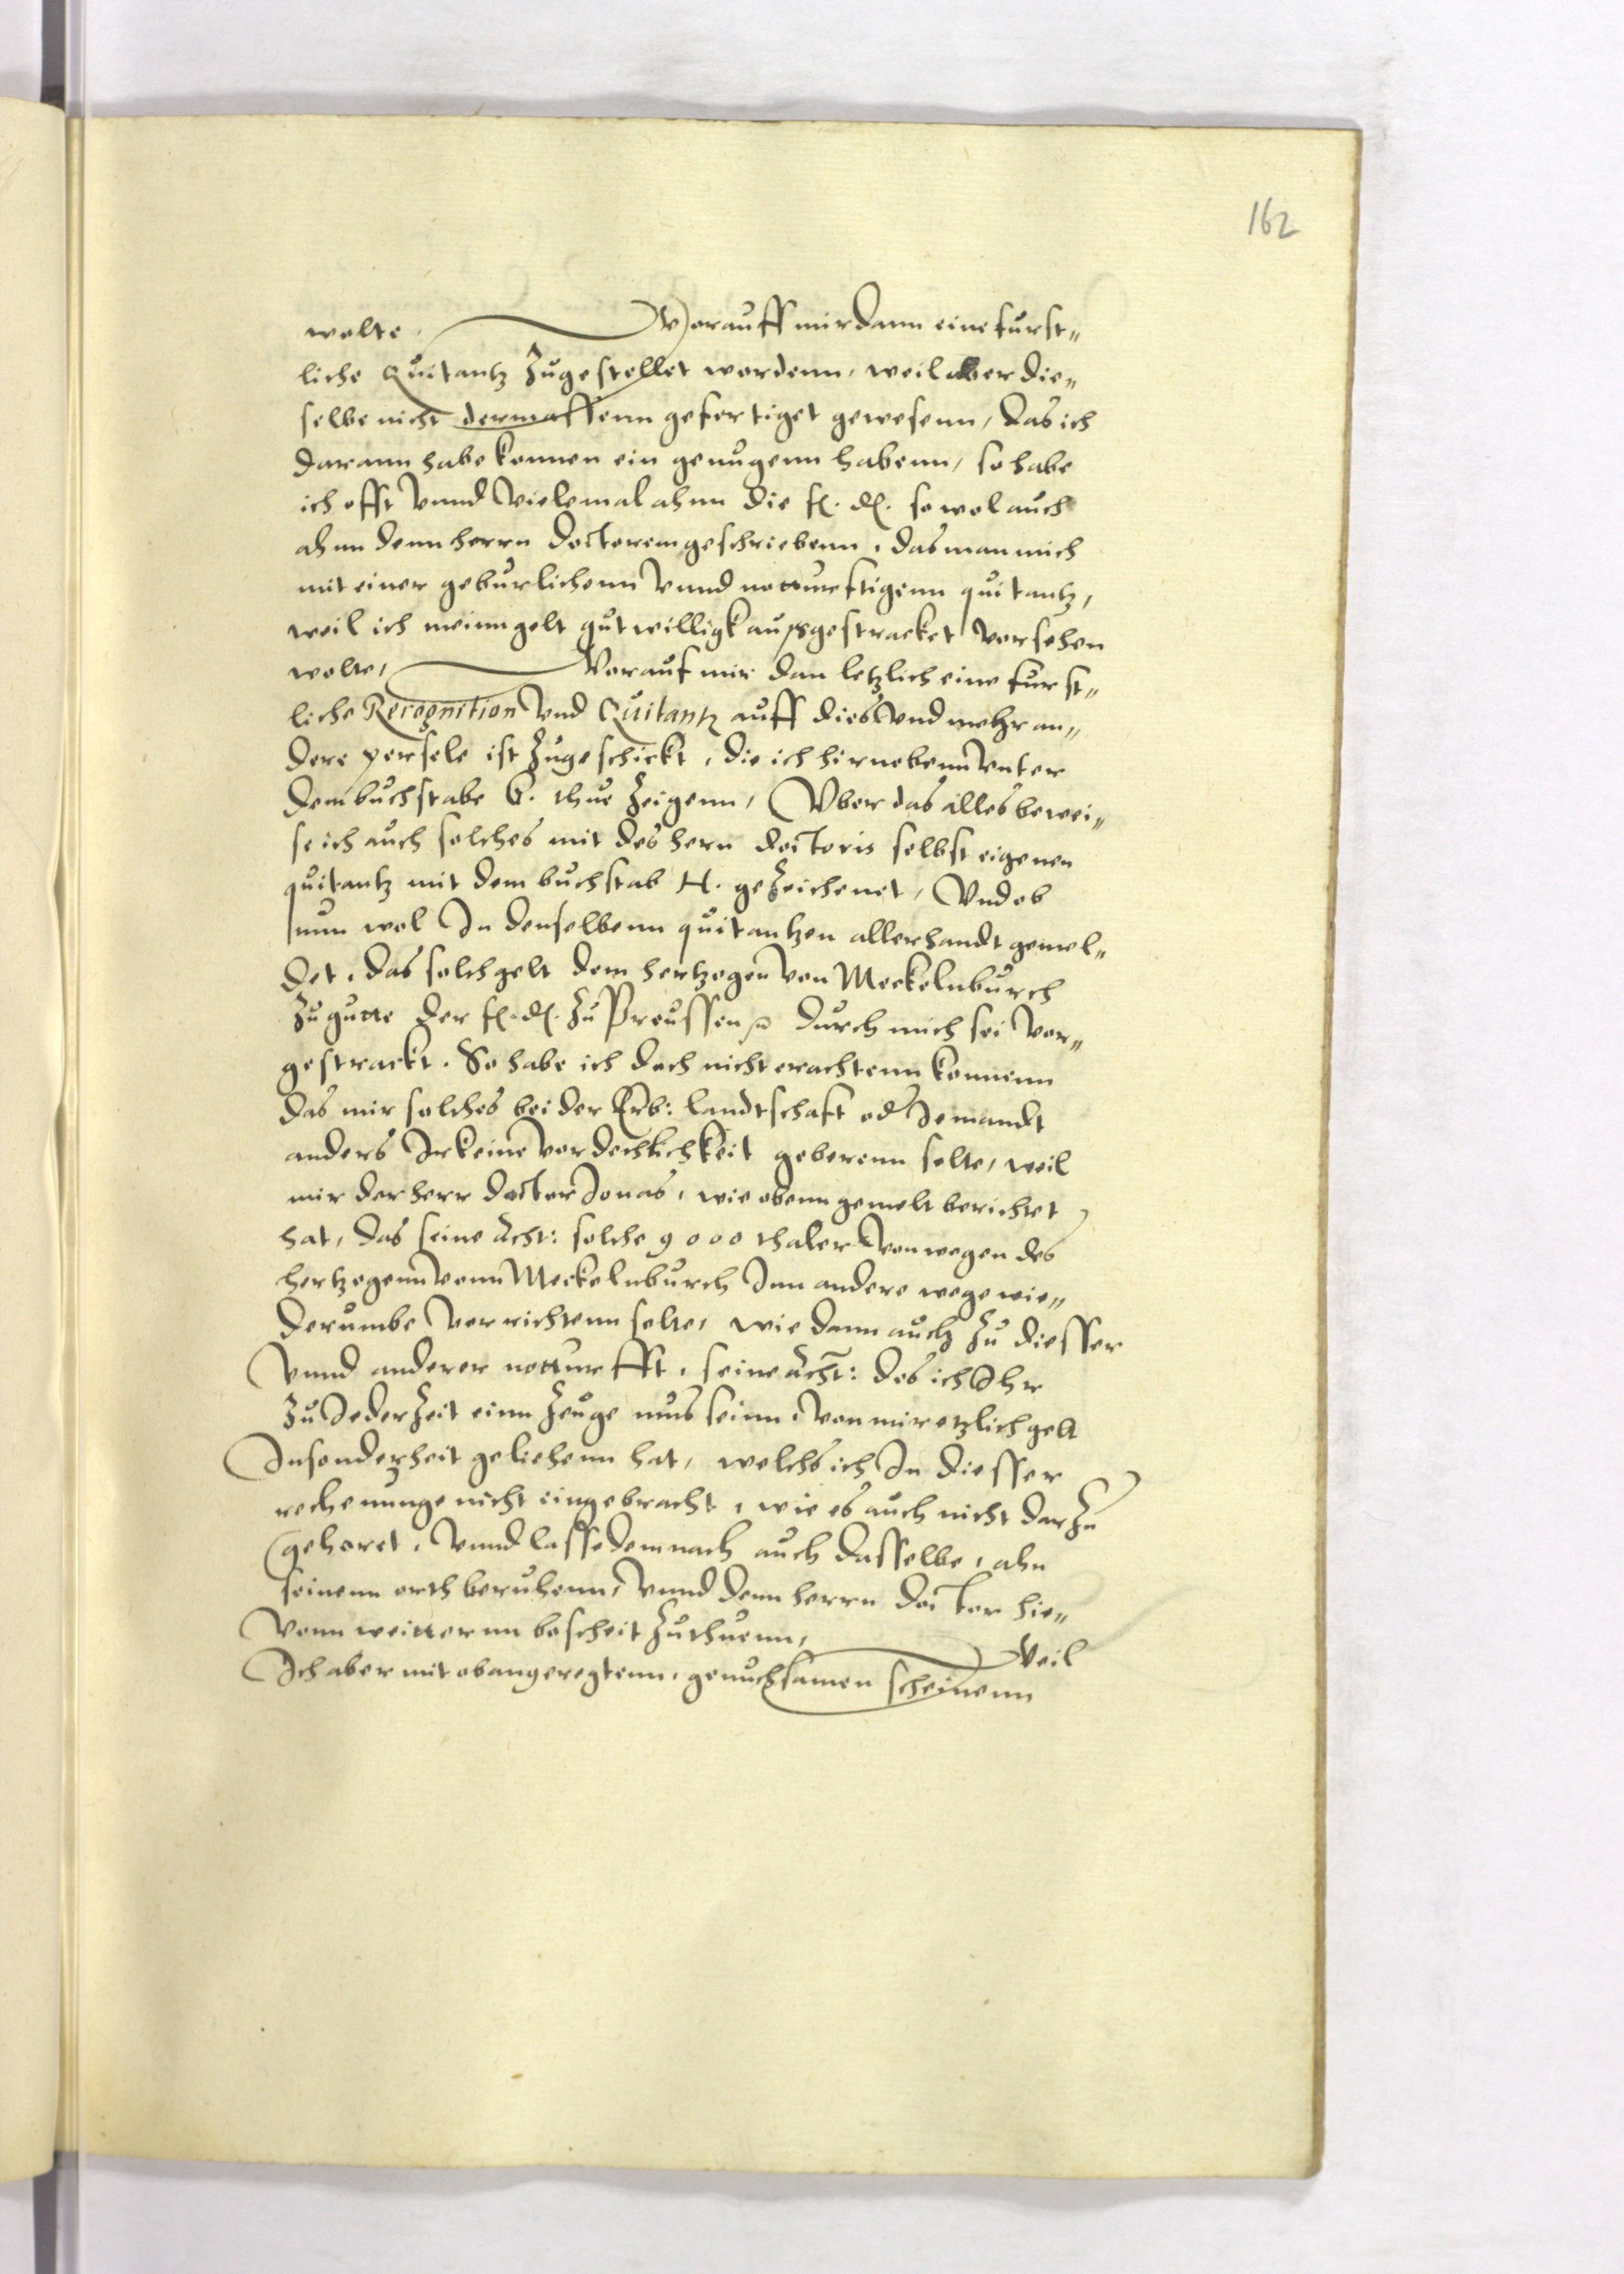 162
wolte, Worauff mir dann eine furst„
liche Quitantz Zugestellet wordenn, weil aber die„
selbe nicht dermassenn gefertiget gewesenn, das ich
darann habe konnen ein genugenn habenn, so habe
ich offt vnnd vielemal ahnn die f. d. so wol auch
ahnn denn herrn Doctorem geschriebenn, das man mich
mit einer geburlichenn vnnd notturftigenn quitantz,
weil ich meinn gelt gutwilligk außgestracket vorsehen
wolte, Vorauf mir dan letzlich eine furst„
liche Recognition vnd Quitantz auff dies vnd mehr an„
dere persele ist Zugeschickt, die ich hirnebenn vnter
dem buchstabe G. thue Zeigenn, Vber das alles bewei„
se ich auch solches mit des hern doctoris selbst eigenen
quitantz mit dem buchstab H. geZeichenet, Vnd ob
nun wol In denselbenn quitantzen allerhandt gemel„
det, das solch gelt dem hertzogen von Meckelnburch
Zu gutte der f. d. Zu Preussen durch mich sei vor„
gestrackt. So habe ich doch nicht erachtenn konnenn
das mir solches bei der Erb: landtschaft od Jemandt
anders Irkeine vordechlichkeit geberenn solte, weil
mir der herr doctor Jonas, wie obenn gemelt berichtet
hat, das seine Acht: solche 9000 thaler von wegen des
hertzogenn vonn Meckelnburch Inn andere wege wie„
derumbe verrichtenn solte, wie dann auch Zu diesser
vnnd anderer notturfft, seine Acht: des ich Ihr
Zu Jeder Zeit einn Zeuge mus seinn, von mir etzlich gelt
Insonderheit geliehenn hat, welchs ich In diesser
rechenunge nicht eingebracht, wie es auch nicht dar Zu
gehoret, vnnd lasse demnach auch dasselbe, ahn
seinenn orth beruhenn, vnnd denn herrn Doctor hie„
vonn weitternn bescheit Zuthuenn, Weil
Ich aber mit obangeregtenn, genuchsamen scheinenn